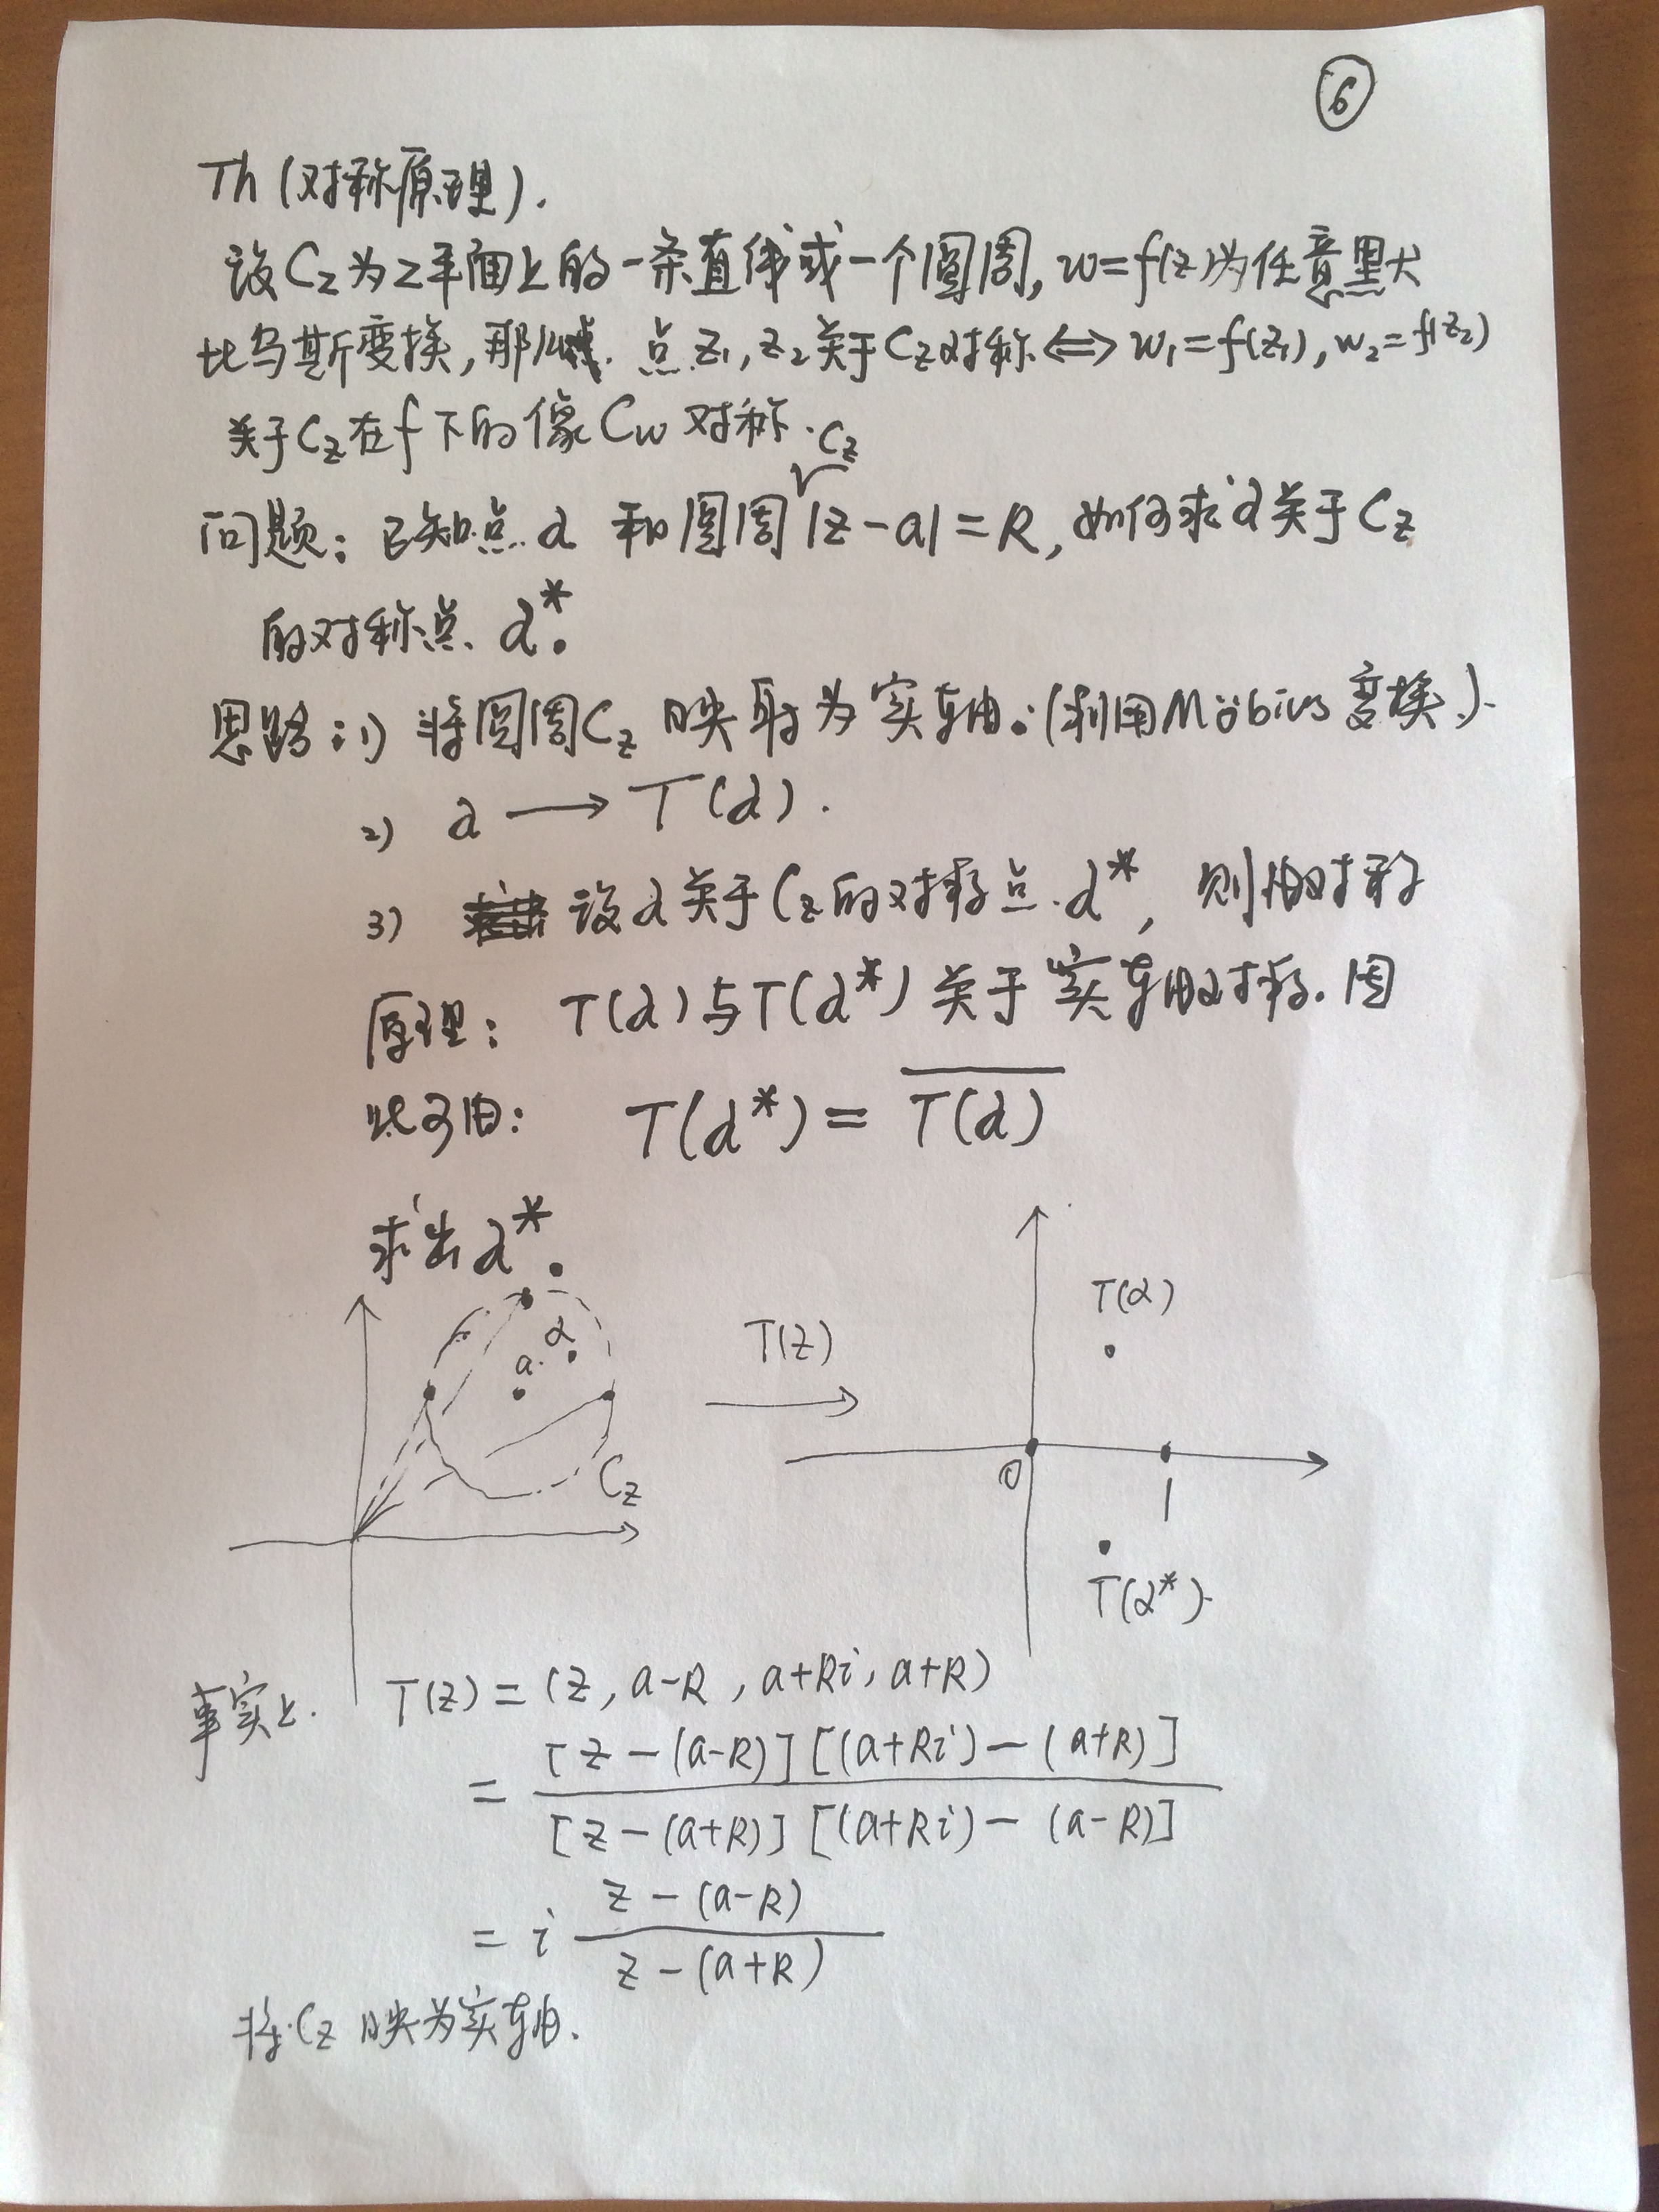 ⑥
Th (对称原理).
设 C_z 为 z 平面上的一条直线或一个圆周, w=f(z)为任意默
比乌斯变换, 那么 点 z₁, z₂ 关于 C_z 对称 ⟺ w₁=f(z₁), w₂=f(z₂)
关于 C_z 在 f 下的像 C_w 对称.
问题: 已知点 α 和圆周 C_z |z-a|=R, 如何求 α 关于 C_z
的对称点 α*.
思路: 1) 将圆周 C_z 映射为实轴. (利用 Möbius 变换).
2) α ⟶ T(α).
3) 设 α 关于 C_z 的对称点 α*, 则由对称
原理: T(α) 与 T(α*) 关于实轴对称. 因
此可由: T(α*) = \overline{T(α)}
求出 α*.
α
a
C_z
T(z)
T(α)
0
1
T(α*).
事实上. T(z) = (z, a-R, a+Ri, a+R)
= \frac{[z-(a-R)][(a+Ri)-(a+R)]}{[z-(a+R)][(a+Ri)-(a-R)]}
= i \frac{z-(a-R)}{z-(a+R)}
将 C_z 映为实轴.